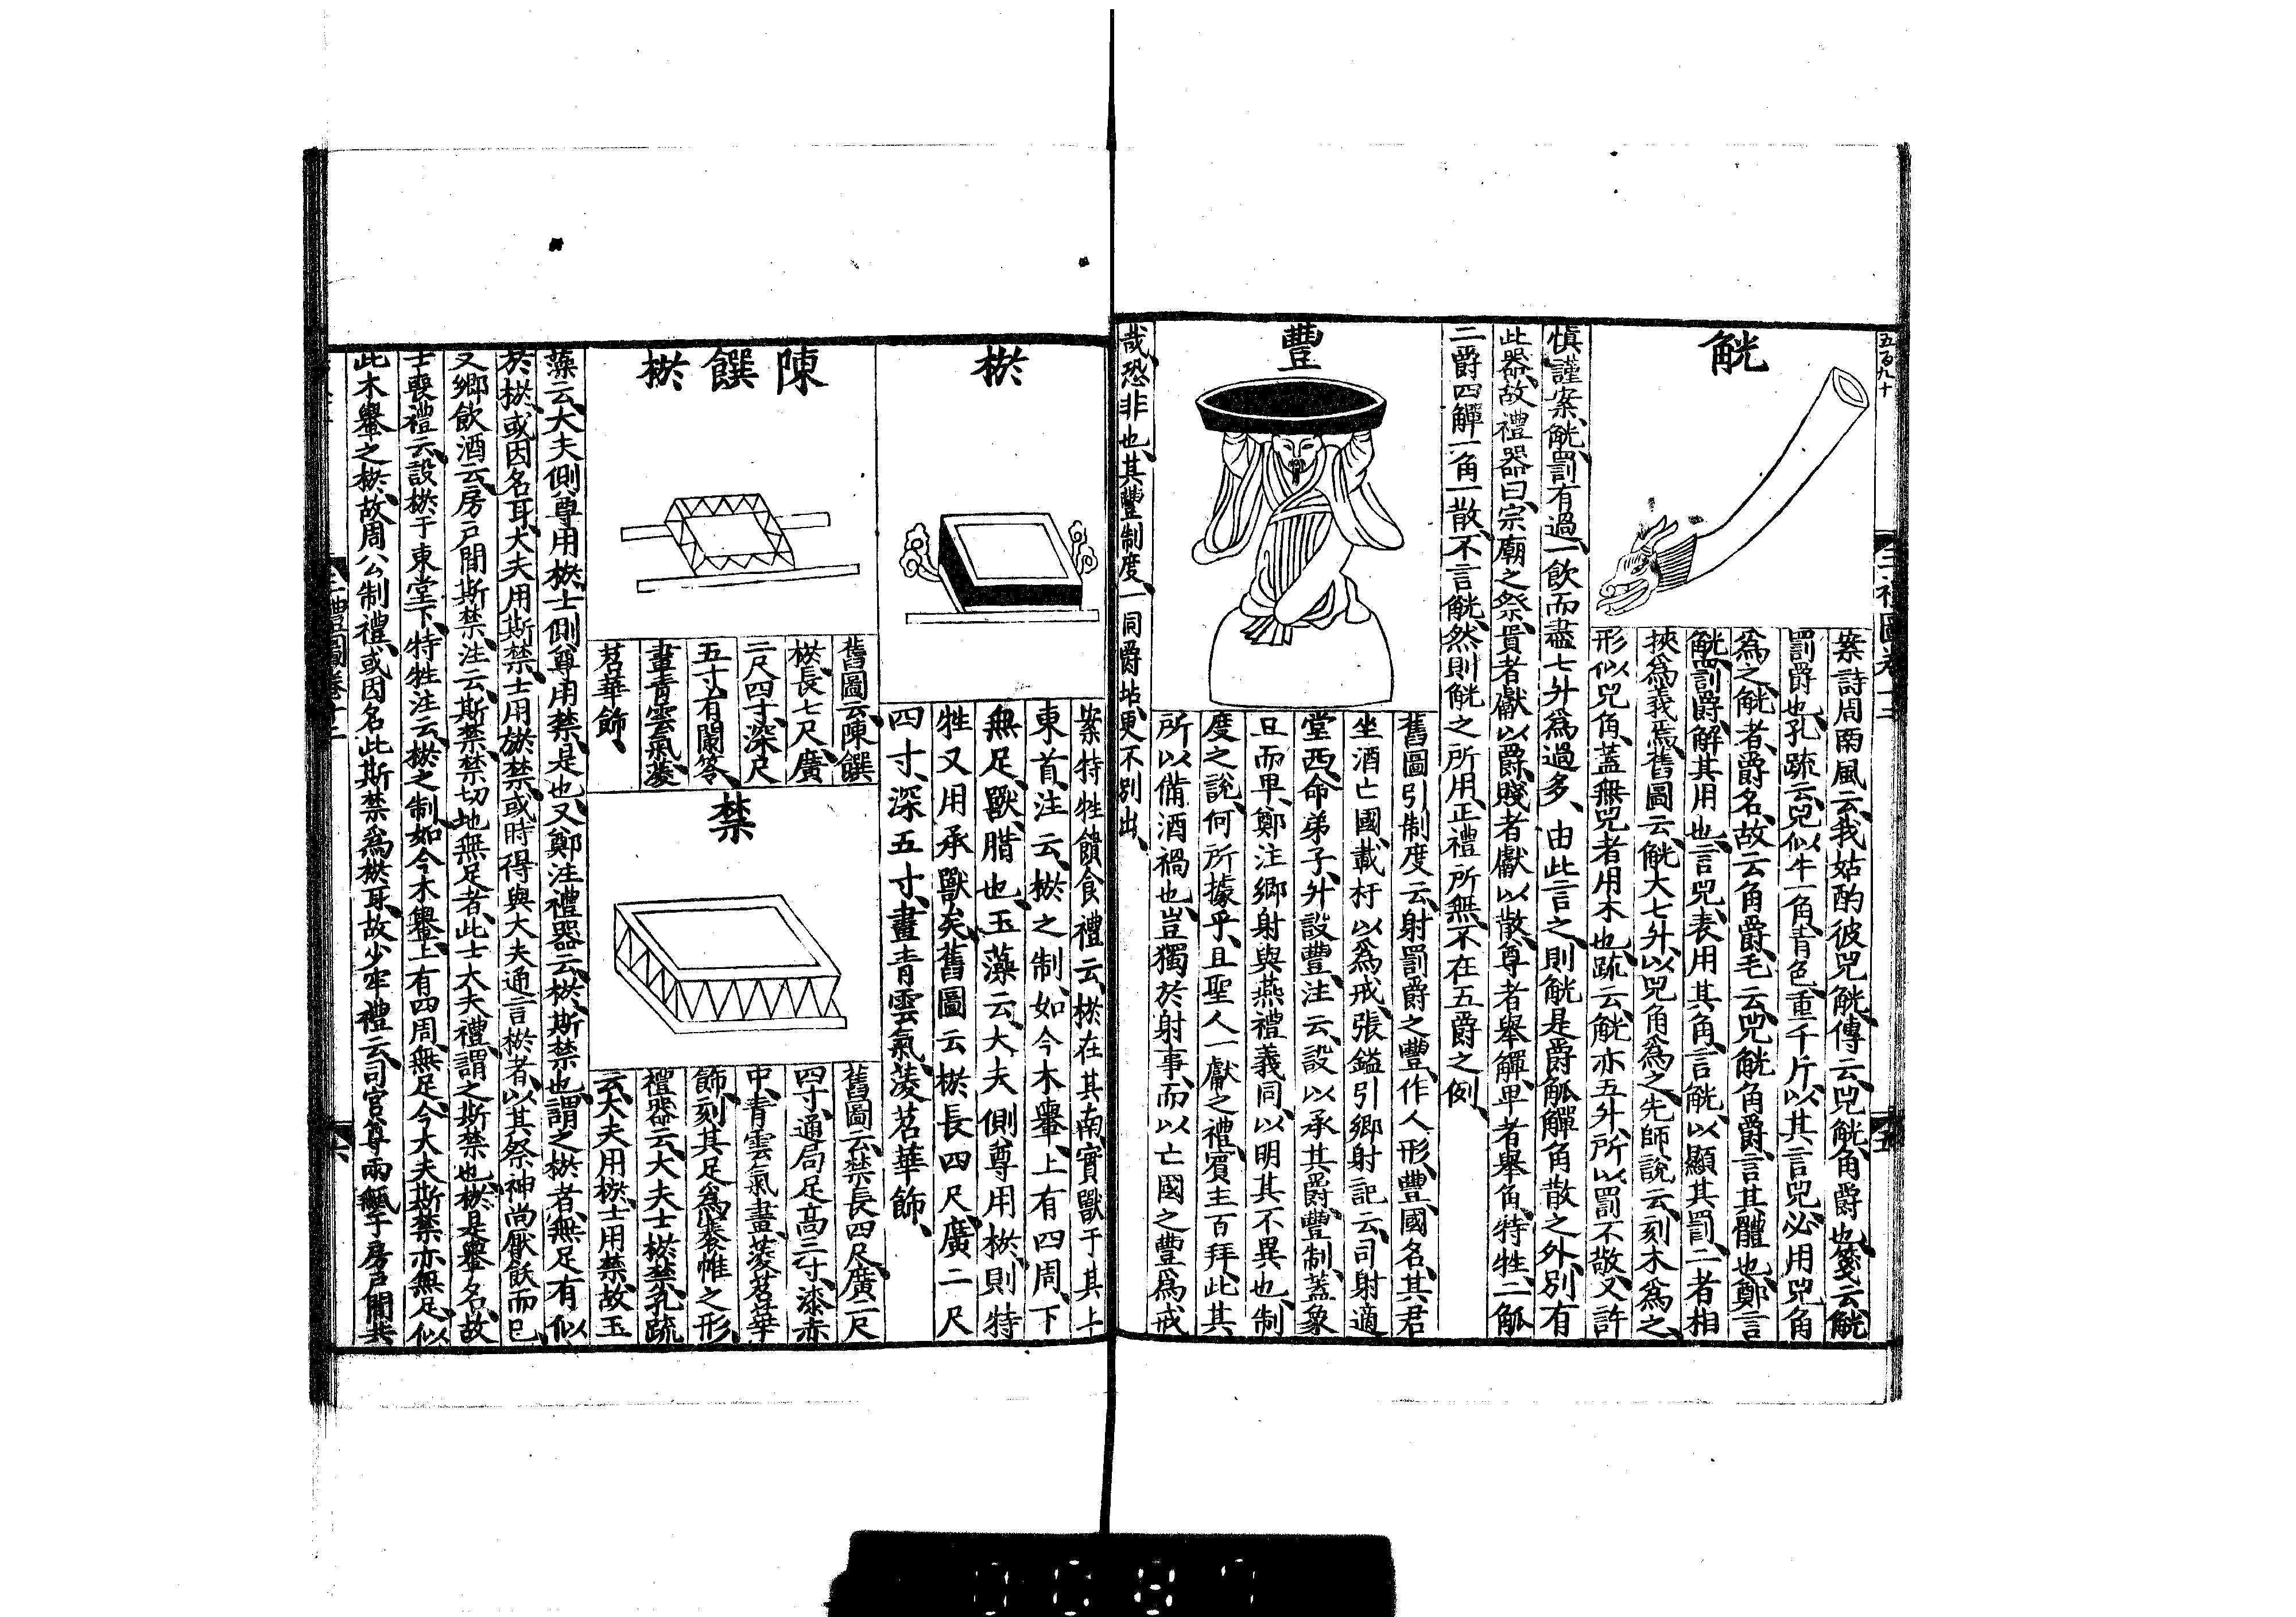 五百九十
觥
案詩周南風云我姑酌彼兕觥傳云兕觥角爵也箋云觥
罰爵也孔疏云兕似牛一角青色重千斤以其言兕必用兕角
為之觥者爵名故云角爵毛云兕觥角爵言其體也鄭言
觥罰爵解其用也言兕表用其角言觥以顯其罰二者相
挾為義焉舊圖云觥大七升以兕角為之先師說云刻木為之
形似兕角蓋無兕者用木也疏云觥亦五升所以罰不敬又許
慎謹案觥罰有過一飲而盡七升為過多由此言之則觥是爵觚觶角散之外別有
此器故禮器曰宗廟之祭貴者獻以爵賤者獻以散尊者舉觶卑者舉角特牲二觚
二爵四觶一角一散不言觥然則觥之所用正禮所無不在五爵之例
豐
舊圖引制度云射罰爵之豐作人形豐國名其君
坐酒亡國載杅以為戒張鎰引鄉射記云司射適
堂西命弟子升設豐注云設以承其爵豐制蓋象
豆而卑鄭注鄉射與燕禮義同以明其不異也制
度之說何所據乎且聖人一獻之禮賓主百拜此其
所以備酒禍也豈獨於射事而以亡國之豐為戒
哉恐非也其豐制度一同爵坫更不別出
棜
案特牲饋食禮云棜在其南實獸于其上
東首注云棜之制如今木轝上有四周下
無足獸腊也玉藻云大夫側尊用棜則特
牲又用承獸矣舊圖云棜長四尺廣二尺
四寸深五寸畫青雲氣蔆苕華飾
陳饌棜
舊圖云陳饌
棜長七尺廣
二尺四寸深尺
五寸有闌笭
畫青雲氣蔆
苕華飾
禁
舊圖云禁長四尺廣二尺
四寸通局足高三寸漆赤
中青雲氣畫蔆苕華
飾刻其足為褰帷之形
禮器云大夫士棜禁孔疏
云大夫用棜士用禁故玉
藻云大夫側尊用棜士側尊用禁是也又鄭注禮器云棜斯禁也謂之棜者無足有似
於棜或因名耳大夫用斯禁士用棜禁或時得與大夫通言棜者以其祭神尚厭飫而已
又鄉飲酒云房戶間斯禁注云斯禁禁切地無足者此士大夫禮謂之斯禁也棜是轝名故
士喪禮云設棜于東堂下特牲注云棜之制如今木轝上有四周無足今大夫斯禁亦無足似
此木轝之棜故周公制禮或因名此斯禁為棜耳故少牢禮云司宮尊兩甒于房戶間共
三禮圖卷十二
五
三禮圖卷十二
六